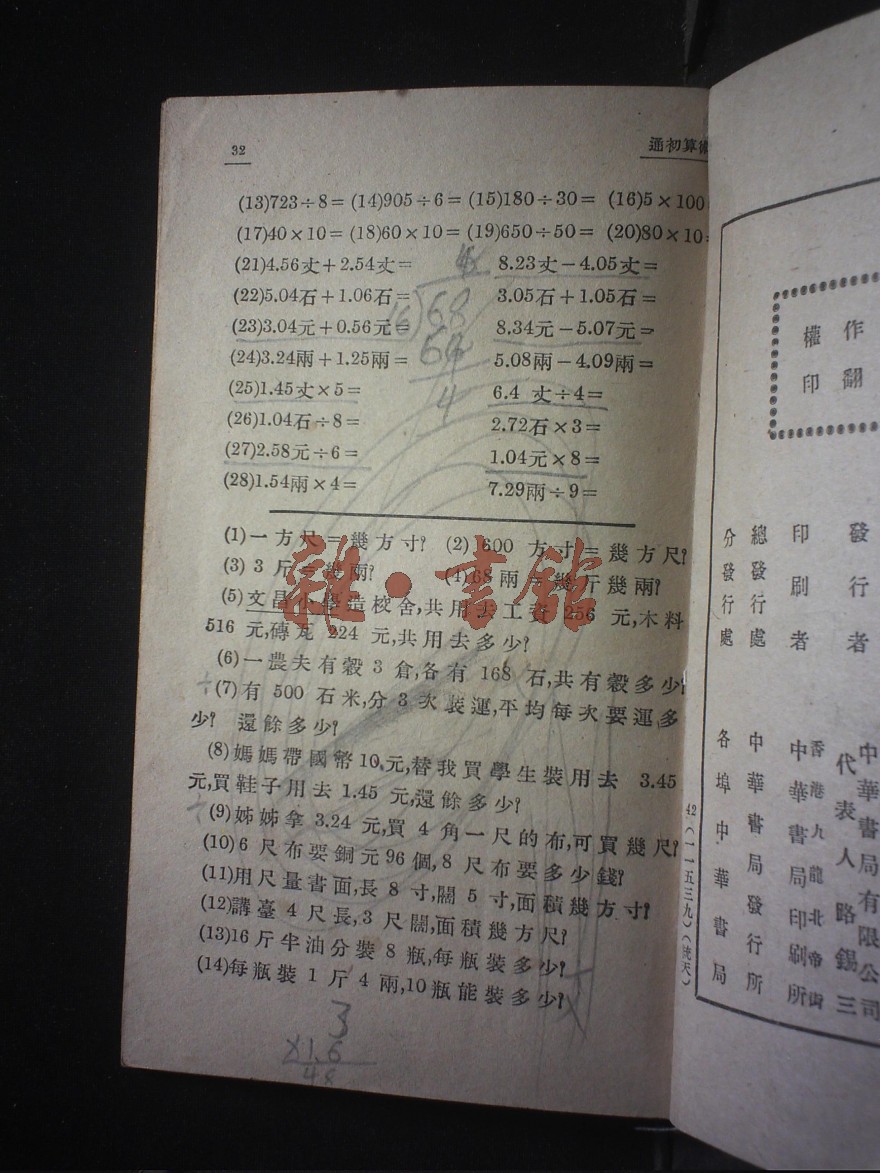 32
通初算術
(13)723÷8= (14)905÷6= (15)180÷30= (16)5×100
(17)40×10= (18)60×10= (19)650÷50= (20)80×10=
(21)4.56丈+2.54丈= 8.23丈-4.05丈=
(22)5.04石+1.06石= 3.05石+1.05石=
(23)3.04元+0.56元= 8.34元-5.07元=
(24)3.24兩+1.25兩= 5.08兩-4.09兩=
(25)1.45丈×5= 6.4 丈÷4=
(26)1.04石÷8= 2.72石×3=
(27)2.58元÷6= 1.04元×8=
(28)1.54兩×4= 7.29兩÷9=
16)68
64
4
(1)一方尺=幾方寸? (2) 600 方寸=幾方尺?
(3) 3 斤=幾兩? (4)68兩=幾斤幾兩?
(5)文昌小學造校舍,共用去工資 256 元,木料
516 元,磚瓦 224 元,共用去多少?
(6)一農夫有穀 3 倉,各有 168 石,共有穀多少?
÷(7)有 500 石米,分 3 次裝運,平均每次要運多
少? 還餘多少?
(8)媽媽帶國幣10元,替我買學生裝用去 3.45
元,買鞋子用去 1.45 元,還餘多少?
÷(9)姊姊拿 3.24 元,買 4 角一尺的布,可買幾尺?
(10)6 尺布要銅元96個,8 尺布要多少錢?
(11)用尺量書面,長 8 寸,闊 5 寸,面積幾方寸?
(12)講臺 4 尺長,3 尺闊,面積幾方尺?
(13)16斤牛油分裝 8 瓶,每瓶裝多少?
(14)每瓶裝 1 斤 4 兩,10瓶能裝多少?
3
×1.6
48
雜·書館
作權
翻印
發行者 中華書局有限公司
代表人 路錫三
印刷者 香港九龍北帝街
中華書局印刷所
總發行處 中華書局發行所
分發行處 各埠中華書局
42(一一五三九)(統天)